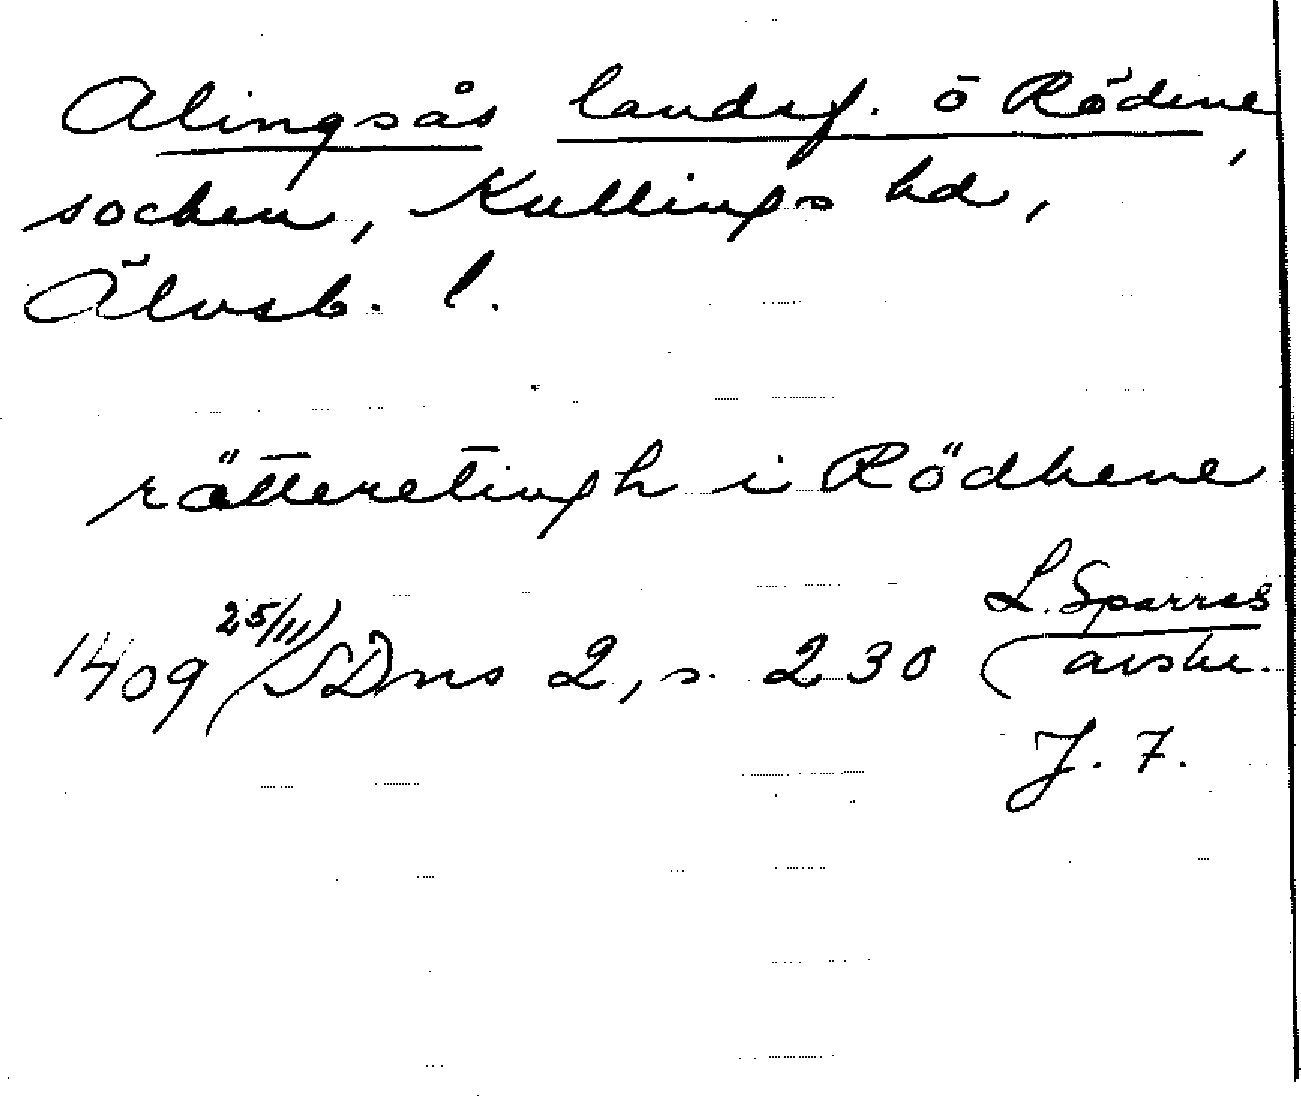 Alingsås landsf. ö Rödene,
socken, Kullings hd,
Älvsb. l.
rättæretingh i Rödhene
1409 25/11 (SDns 2, s. 230 (L. Sparres
avskr.
J. F.